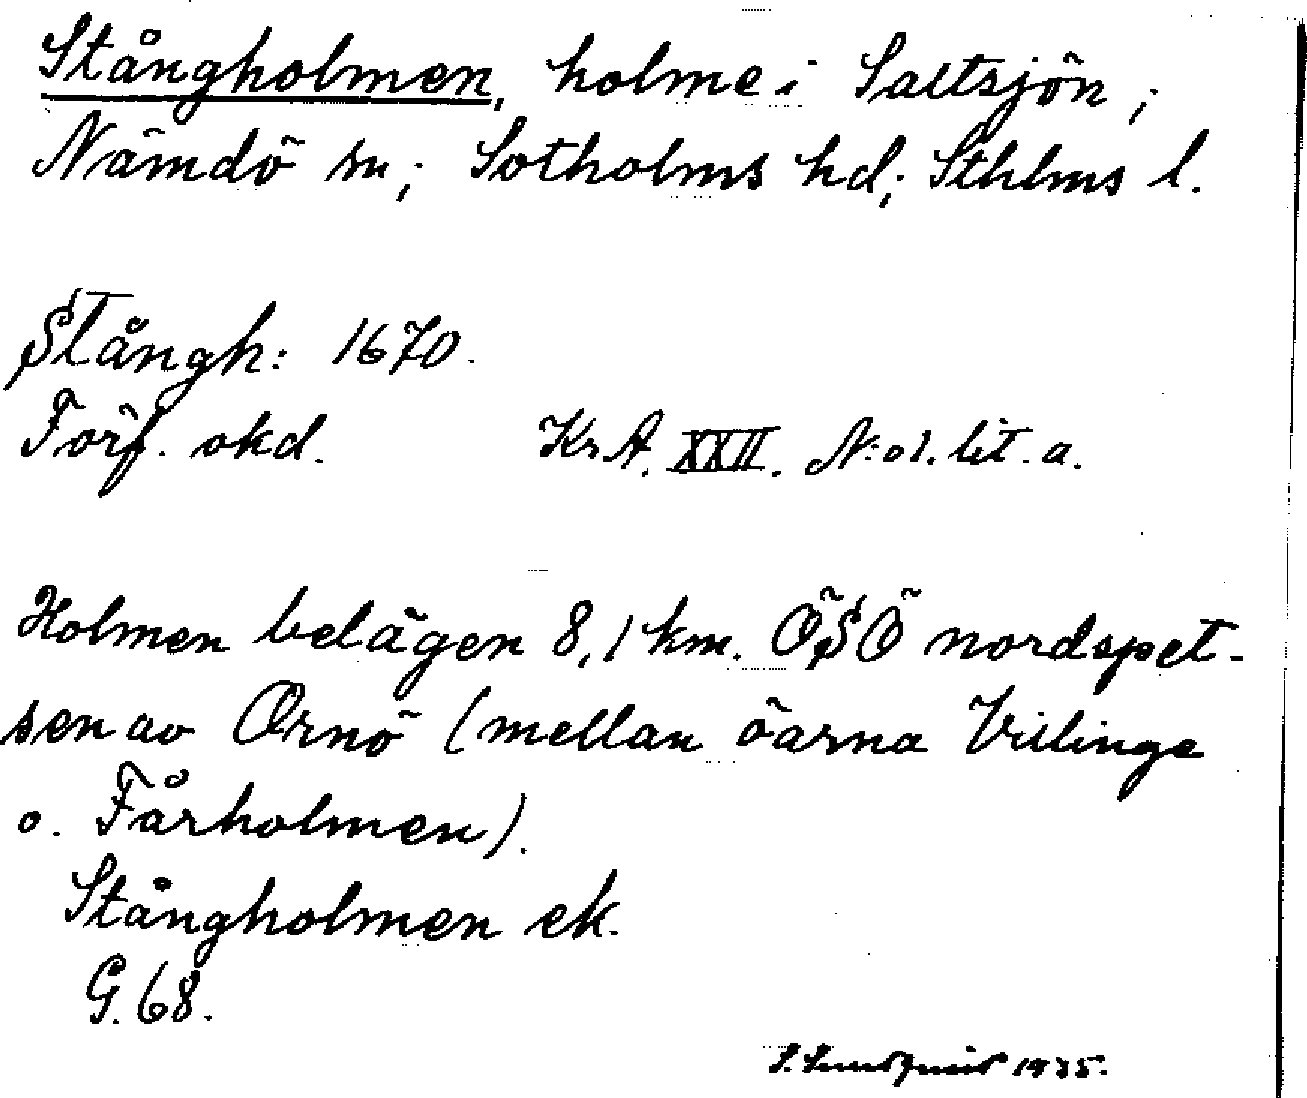 Stångholmen, holme i Saltsjön;
Nämdö sn; Sotholms hd; Sthlms l.
Stångh: 1670.
Förf. okd. Kr.A. XXII. N:o 1. lit. a.
Holmen belägen 8,1 km. ÖSÖ nordspet-
sen av Ornö (mellan öarna Villinge
o. Fårholmen).
Stångholmen ek.
G. 68.
S. Sundquist 1935.